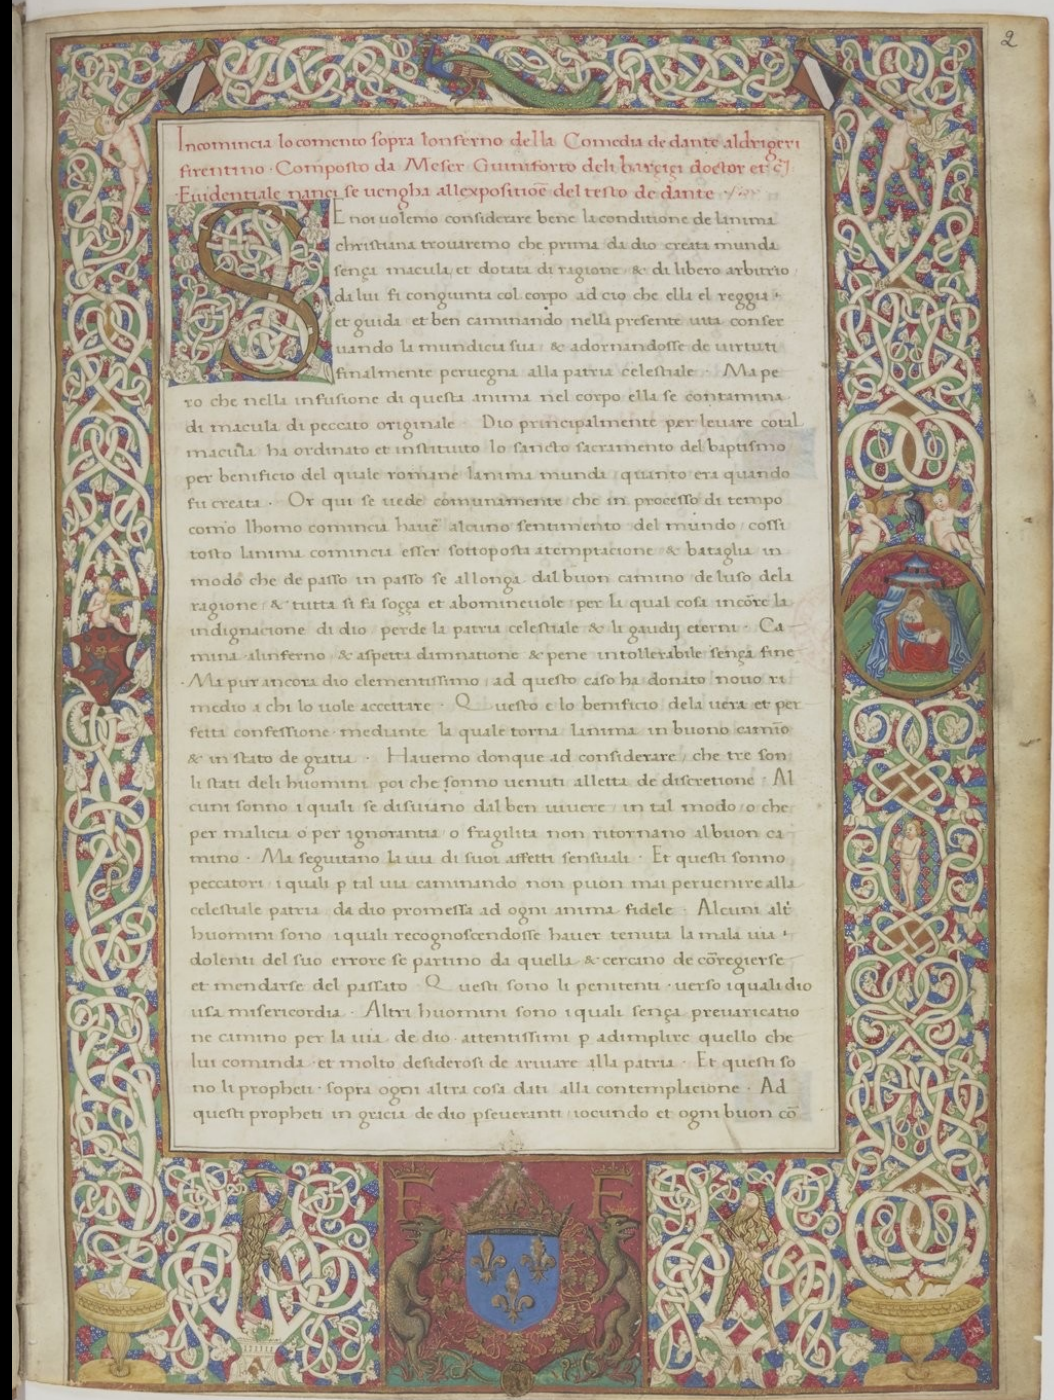 2
Incomincia lo comento sopra lonferno della Comedia de dante aldrigeri
firentino · Composto da Meser Guiniforto deli barçiçi doctor et
Euidentiale nanci se uengha allexpositiõe del testo de dante
SE noi uolemo considerare bene la conditione de lanima
christiana trouaremo che prima da dio creata munda
sença macula et dotata di ragione & di libero arbitrio
da lui fi congiunta col corpo ad cio che ella el reggia ·
et guida et ben caminando nella presente uita conser
uando la mundicia sua & adornandosse de uirtuti
finalmente peruegna alla patria celestiale · Ma pe
ro che nella infusione di questa anima nel corpo ella se contamina
di macula di peccato originale · Dio principalmente per leuare cotal
macula ha ordinato et instituito lo sancto sacramento del baptismo
per benificio del quale romane lanima munda quanto era quando
fu creata · Or qui se uede comunamente che in processo di tempo
como lhomo comincia hauē alcuno sentimento del mundo cossi
tosto lanima comincia esser sottoposta a temptacione & bataglia in
modo che de passo in passo se allonga dal buon camino de luso dela
ragione & tutta si fa soçça et abomineuole per la qual cosa incõre la
indignacione di dio perde la patria celestiale & li gaudij eterni · Ca
mina alinferno & aspetta damnatione & pene intollerabile sença fine
· Ma pur ancora dio clementissimo ad questo caso ha donato nouo ri
medio a chi lo uole accettare · Questo e lo benificio dela uera et per
fetta confessione mediante la quale torna lanima in buono camīo
& in stato de gratia · Hauemo donque ad considerare che tre son
li stati deli huomini poi che sonno uenuti alletta de discretione · Al
cuni sonno i quali se disuiano dal ben uiuere in tal modo o che
per malicia o per ignorantia o fragilita non ritornano al buon ca
mino · Ma seguitano la uia di suoi affetti sensuali · Et questi sonno
peccatori i quali p tal uia caminando non puon mai peruenire alla
celestiale patria da dio promessa ad ogni anima fidele · Alcuni alt̃
huomini sono i quali recognoscendosse hauer tenuta la mala uia ·
dolenti del suo errore se partino da quella & cercano de cõregierse
et mendarse del passato · Questi sono li penitenti · uerso i quali dio
usa misericordia · Altri huomini sono i quali sença preuaricatio
ne camino per la uia de dio attentissimi p adimplire quello che
lui comanda et molto desiderosi de ariuare alla patria · Et questi so
no li propheti · sopra ogni altra cosa dati alla contemplacione · Ad
questi propheti in gracia de dio pseueranti iocundo et ogni buon cõ
F F